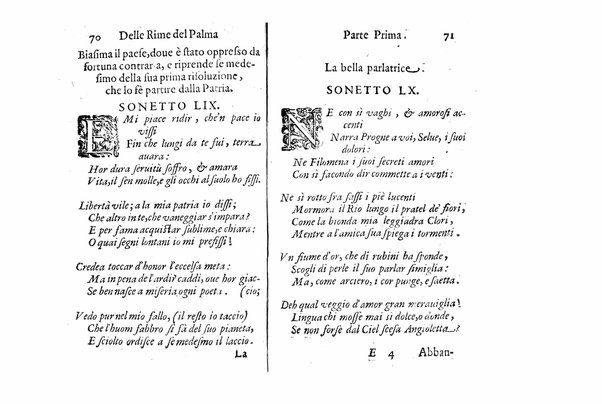 70 Delle Rime del Palma
Biasima il paese, doue è stato oppresso da
fortuna contraria, e riprende se mede-
simo della sua prima risoluzione,
che lo fè partire dalla Patria.
SONETTO LIX.
E Mi piace ridir, che'n pace io
vissi
Fin che lungi da te fui, terra
auara:
Hor dura seruitù soffro, & amara
Vita, il sen molle, e gli occhi al suolo hò fissi.
Libertà vile; a la mia patria io dissi;
Che altro in te, che vaneggiar s'impara?
E per fama acquistar sublime, e chiara:
O quai segni lontani io mi prefissi!
Credea toccar d'honor l'eccelsa meta:
Ma in pena de l'ardir caddi, oue hor giac-
Se ben nasce a miseria ogni poeta. (cio;
Vedo pur nel mio fallo, (il resto io taccio)
Che l'huom fabbro si fà del suo pianeta,
E sciolto ordisce a se medesimo il laccio.
La
Parte Prima. 71
La bella parlatrice.
SONETTO LX.
NE con sì vaghi, & amorosi ac-
centi
Narra Progne a voi, Selue, i suoi
dolori:
Ne Filomena i suoi secreti amori
Con sì facondo dir commette a i venti:
Ne sì rotto fra sassi i piè lucenti
Mormora il Rio lungo il pratel de' fiori,
Come la bionda mia leggiadra Clori,
Mentre a l'amica sua spiega i tormenti.
Vn fiume d'or, che di rubini ha sponde,
Scogli di perle il suo parlar simiglia:
Ma, come arciero, i cor punge, e saetta.
Deh qual veggio d'amor gran merauiglia!
Lingua chi mosse mai sì dolce, o donde,
Se non forse dal Ciel scesa Angioletta?
E 4 Abban-